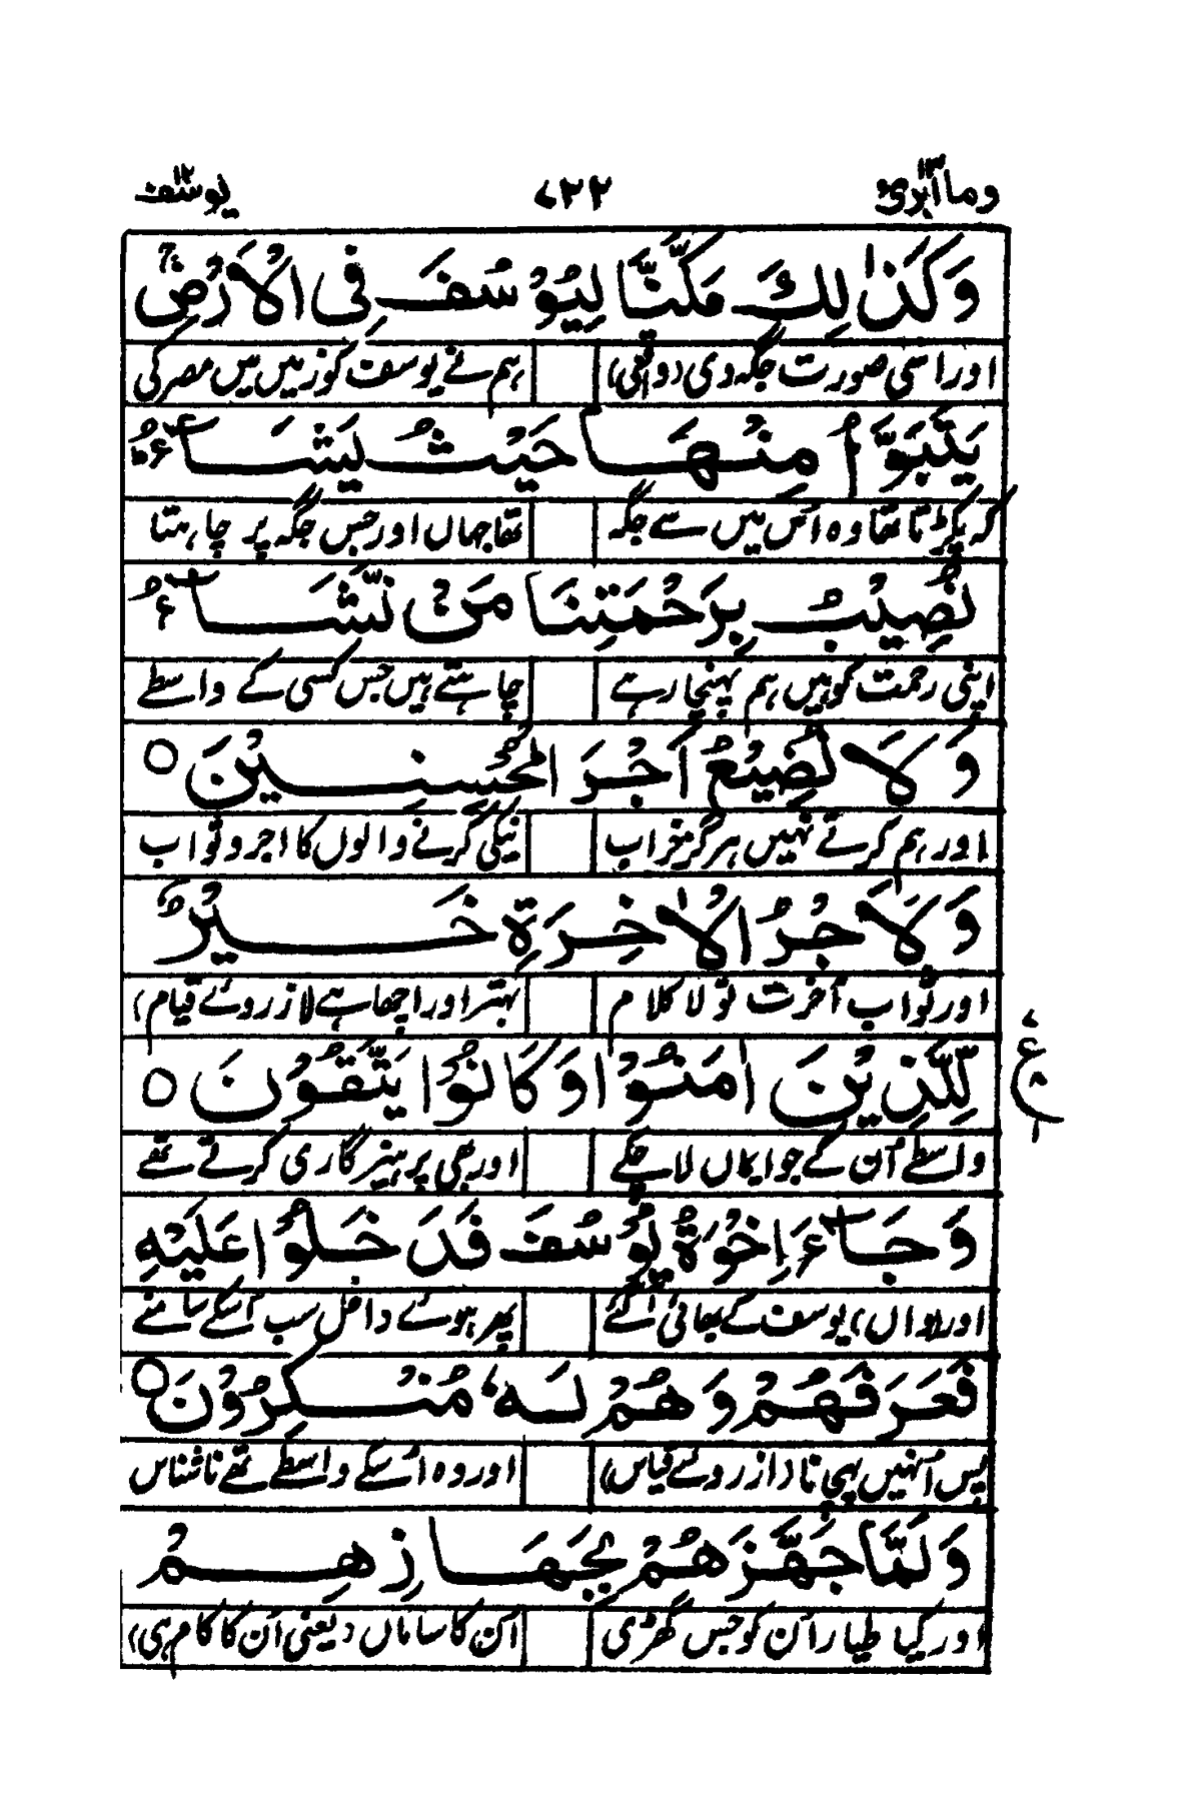 وما ابرئ ١٣
٧٢٢
یوسف ١٢
وَكَذٰلِكَ مَكَّنَّا لِيُوْسُفَ فِى الْاَرْضِ ج
اور اسی صورت جگہ دی (واقعی) ہم نے یوسف کو زمیں میں مصر کی
يَتَبَوَّاُ مِنْهَا حَيْثُ يَشَآءُ ط
کہ پکڑتا تھا وہ اُس میں سے جگہ تھا جہاں اور جس جگہ پر چاہتا
نُصِيْبُ بِرَحْمَتِنَا مَنْ نَّشَآءُ
اپنی رحمت کو ہیں ہم پہنچا رہے چاہتے ہیں جس کسی کے واسطے
وَلَا نُضِيْعُ اَجْرَ الْمُحْسِنِيْنَ ○
اور ہم کرتے نہیں ہرگز خراب نیکی کرنے والوں کا اجر و ثواب
وَلَاَجْرُ الْاٰخِرَةِ خَيْرٌ
اور ثواب آخرت تو لا کلام بہتر اور اچھا ہے (از روئے قیام)
لِّلَّذِيْنَ اٰمَنُوْا وَكَانُوْا يَتَّقُوْنَ ○
٧ ع ٨ ١
واسطے اُن کے جو ایماں لا چکے اور بھی پرہیزگاری کرتے تھے
وَجَآءَ اِخْوَةُ يُوْسُفَ فَدَخَلُوْا عَلَيْهِ
اور (واں) یوسف کے بھائی آ گئے پھر ہوئے داخل سب اُسکے سامنے
فَعَرَفَهُمْ وَهُمْ لَهٗ مُنْكِرُوْنَ ○
پس اُنہیں پہچانا (از روئے قیاس) اور وہ اُسکے واسطے تھے ناشناس
وَلَمَّا جَهَّزَهُمْ بِجَهَازِهِمْ
اور کیا طیار اُن کو جس گھڑی اُن کا ساماں (یعنی اُن کا کام ہی)